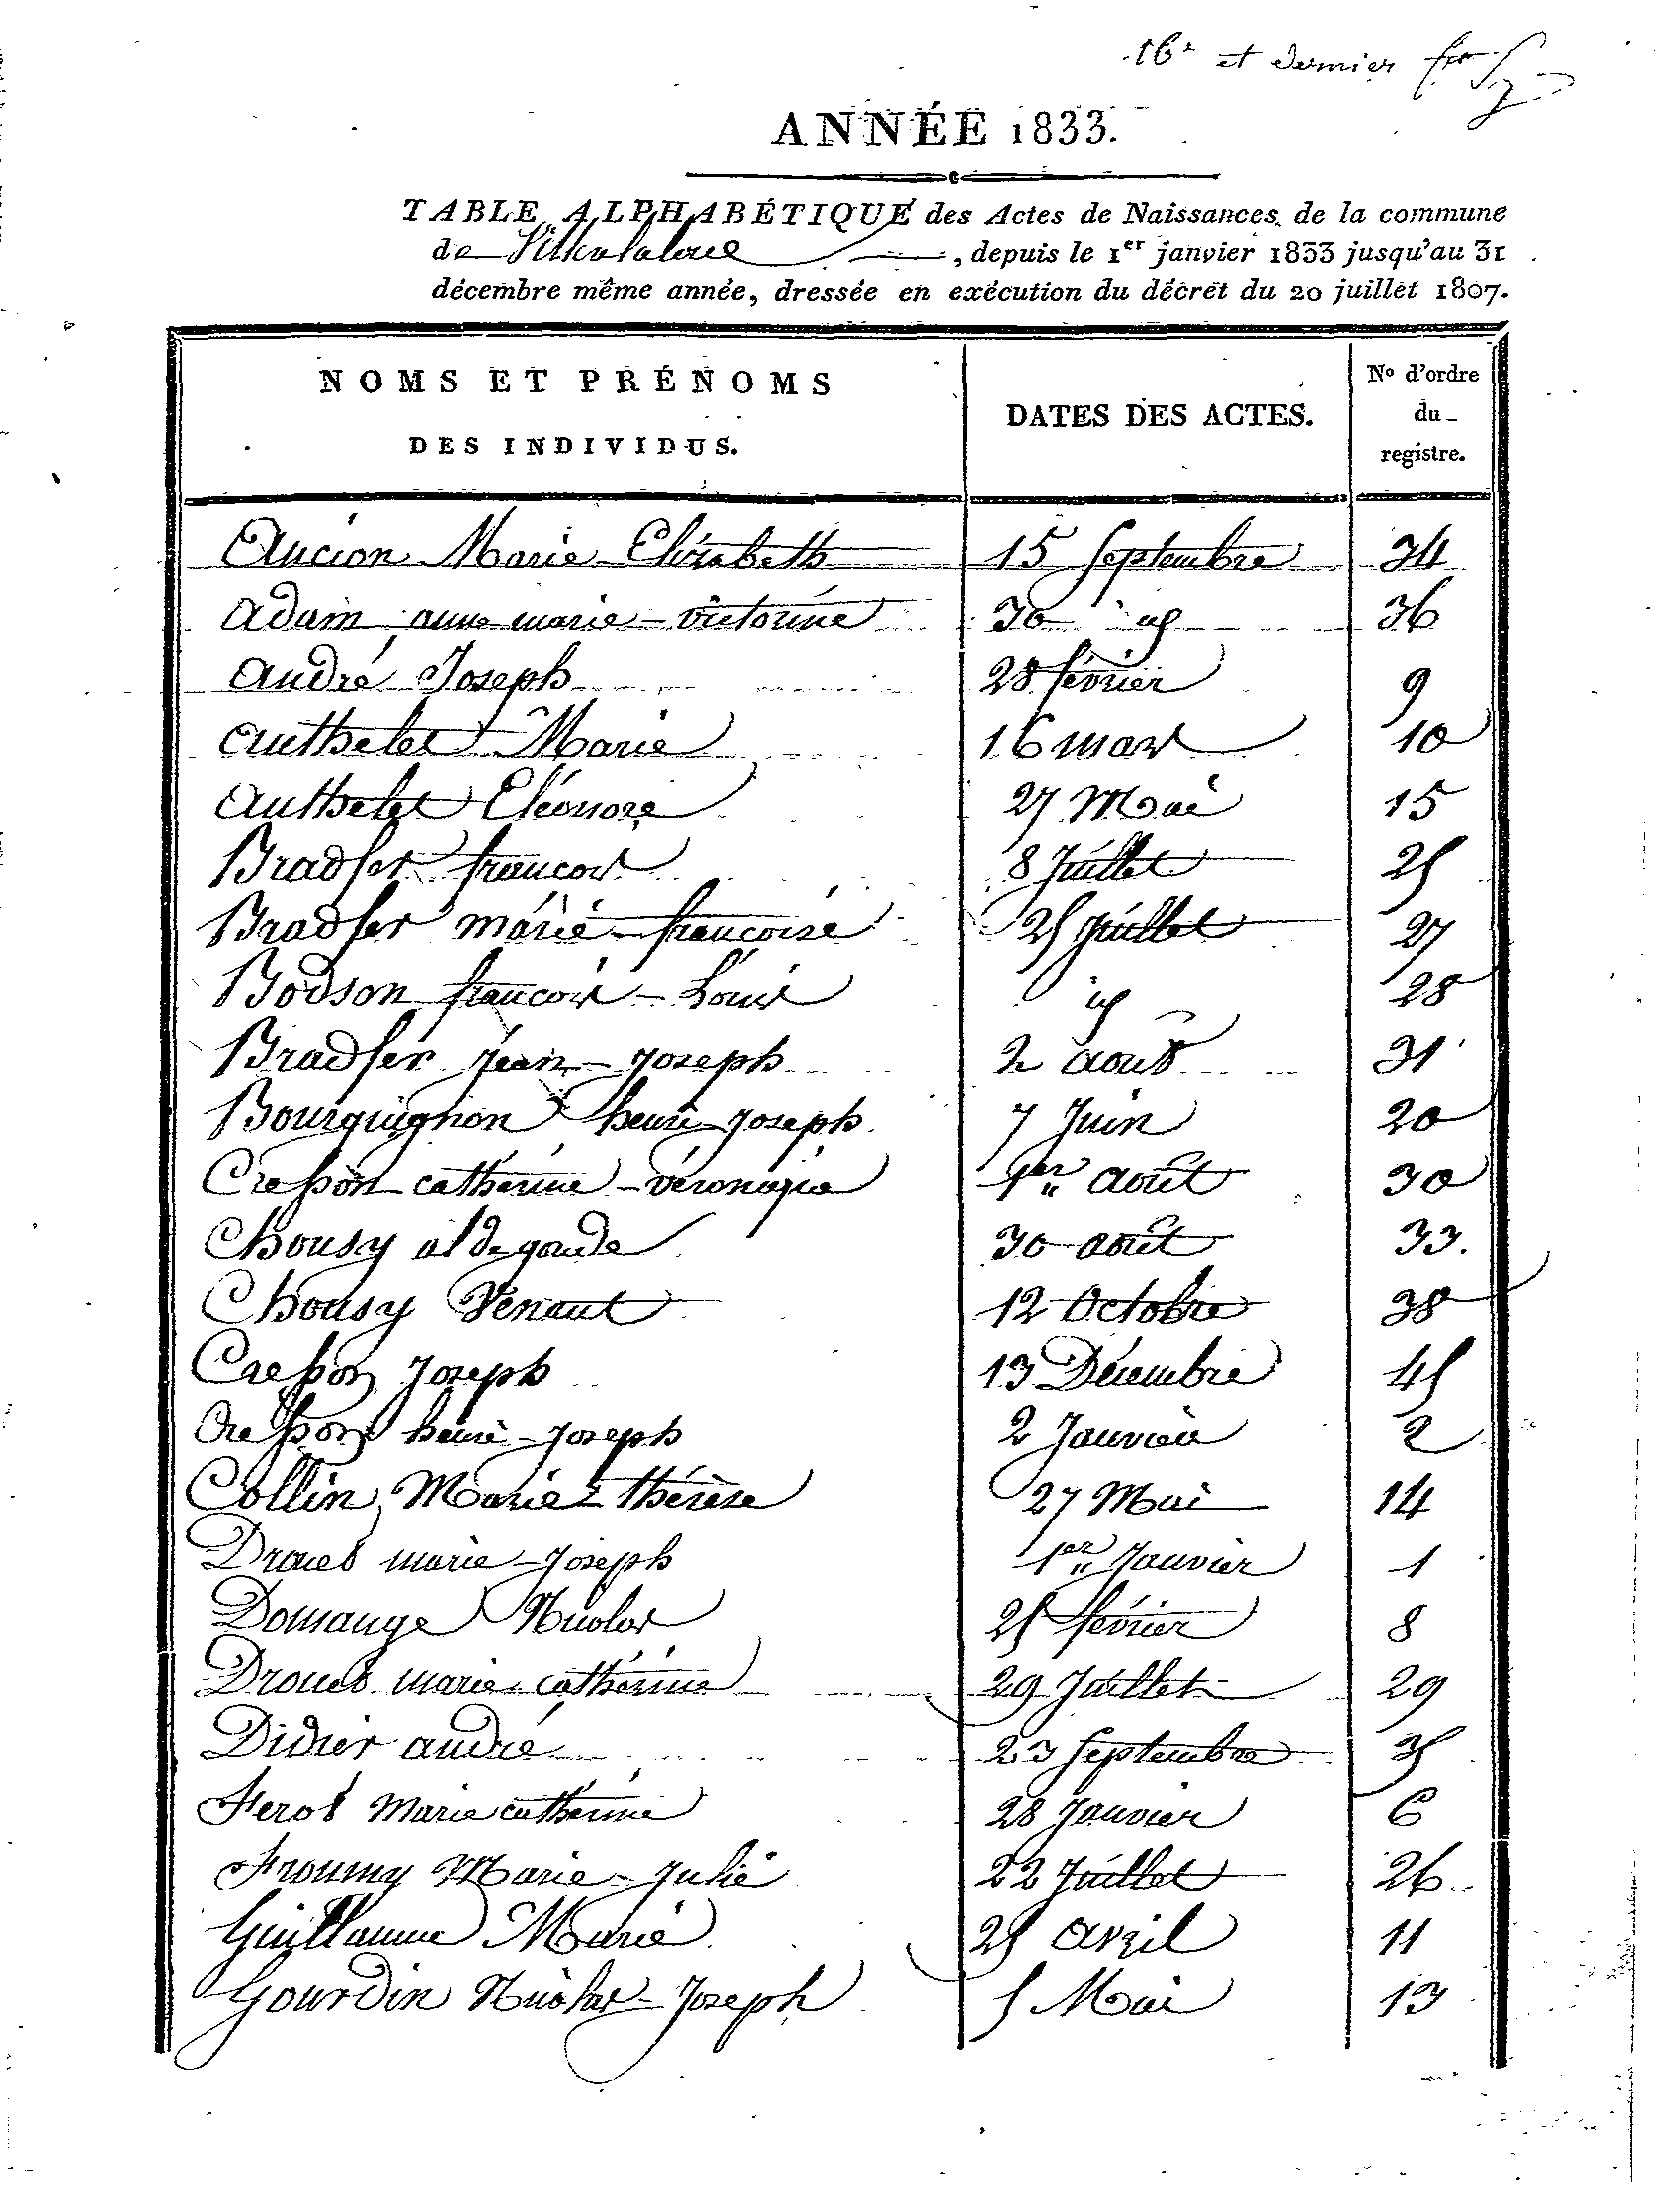 16e et dernier
ANNÉE 1833.
TABLE ALPHABÉTIQUE des Actes de Naissances de la commune
de, depuis le 1er janvier 1833 jusqu'au 31
décembre même année, dressée en exécution du décret du 20 juillet 1807.
NOMS ET PRÉNOMS
DES INDIVIDUS.
DATES DES ACTES.
No d'ordre
du
registre.
Aucion Marie Elizabeth 15 Septembre 34
Adam anne marie-victorine 30 id 36
André Joseph 28 février 9
Authelet Marie 16 mars 10
Authelet Eléonore 27 Mai 15
Bradfer francois 8 Juillet 25
Bradfer marie-francoise 25 Juillet 27
Bodson francois-Louis id 28
Bradfer jean-joseph 2 aout 31
Bourguignon henri-joseph 7 Juin 20
Cresson catherine-véronique 1er août 30
Chousy aldegonde 30 août 33.
Chousy Venant 12 Octobre 38
Cresson Joseph 13 Décembre 45
Cresson henri-joseph 2 Janvier 2
Collin Marie-thérèse 27 Mai 14
Drouet marie-Joseph 1er Janvier 1
Domange Nicolas 25 février 8
Drouet marie-catherine 29 Juillet 29
Didier andré 23 septembre 35
Ferot Marie catherine 28 Janvier 6
Froumy Marie-Julie 22 Juillet 26
Guillaume Marie 25 avril 11
Gourdin Nicolas-Joseph 5 Mai 13